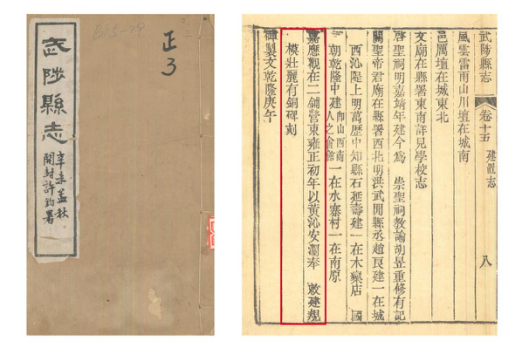 正
3
武陟縣志
辛未孟秋
開封許鈞署
武陟縣志
卷十五
建置志
八
風雲雷雨山川壇在城南
邑厲壇在城東北
文廟在縣署東南詳見學校志
啓聖祠明嘉靖年建今爲 崇聖祠教諭胡昱重修有記
關聖帝君廟在縣署西北明洪武間縣丞趙良建一在城
西沁隄上明萬歷中知縣石延壽建一在木欒店 國
朝乾隆中建 一在水寨村一在南原
嘉應觀在二鋪營東雍正初年以黃沁安瀾奉 敕建規
模壯麗有銅碑刻
御製文乾隆庚午